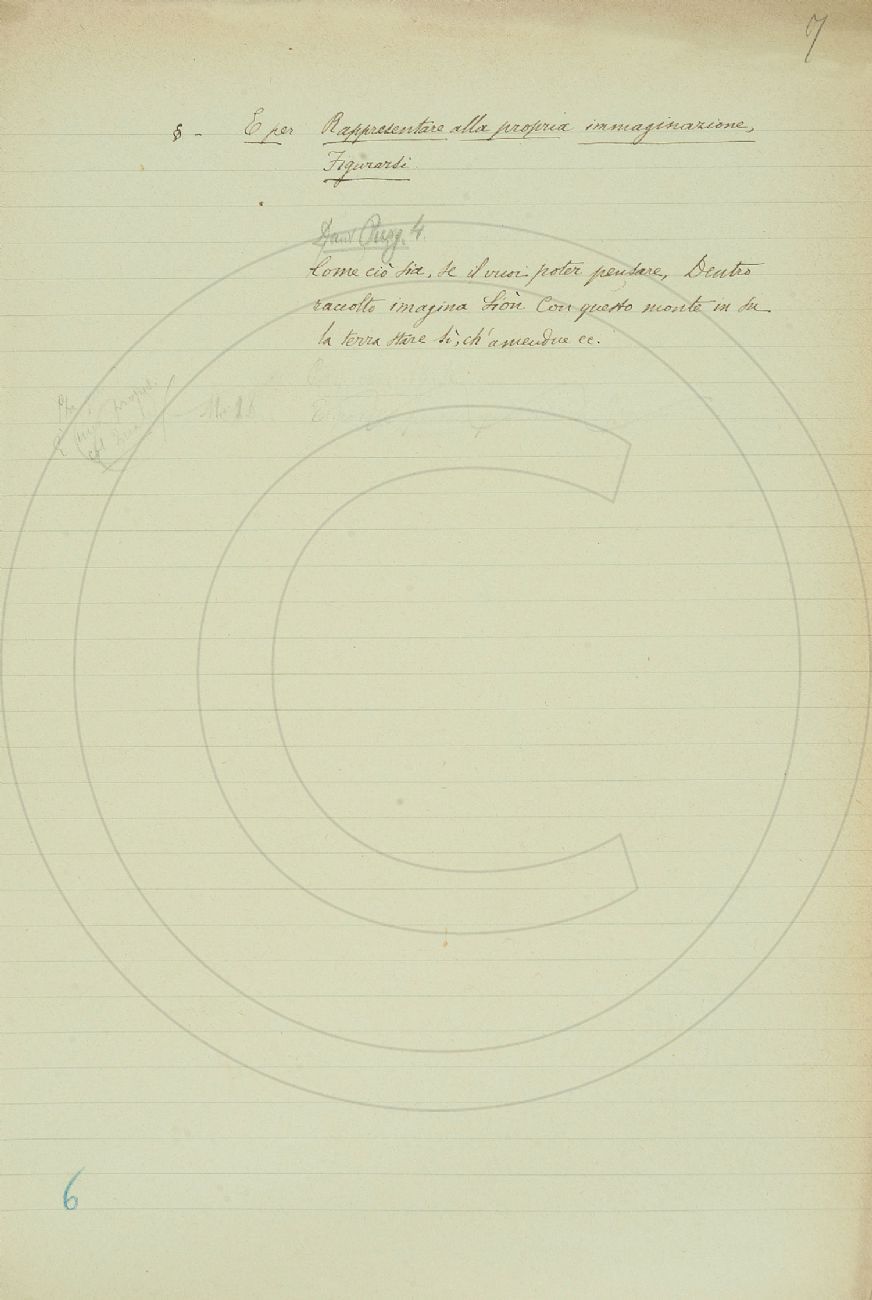 7
§ - E per Rappresentare alla propria immaginazione,
Figurarsi
Dant. Purg. 4.
Come ciò sia, se il vuoi poter pensare, Dentro
raccolto imagina Siòn Con questo monte in su
la terra stare Sì, ch'amendue ec.
6